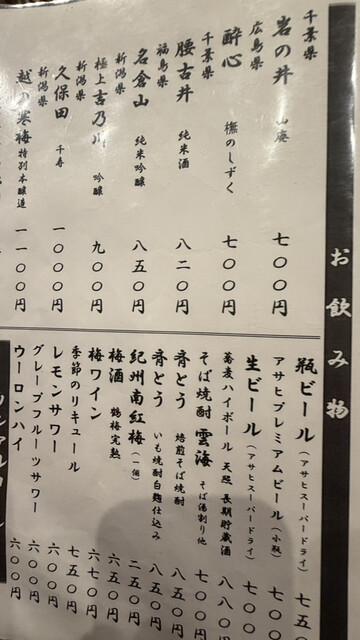 お飲み物
千葉県
岩の井 山廃 七〇〇円
広島県
酔心 橅のしずく 七〇〇円
千葉県
腰古井 純米酒 八二〇円
福島県
名倉山 純米吟醸 八五〇円
新潟県
極上吉乃川 吟醸 九〇〇円
新潟県
久保田 千寿 一〇〇〇円
新潟県
越の寒梅 特別本醸造 一一〇〇円
瓶ビール（アサヒスーパードライ） 七五
アサヒプレミアムビール（小瓶） 七〇〇
生ビール（アサヒスーパードライ） 七〇〇
蕎麦ハイボール 天照 長期貯蔵酒 八八〇
そば焼酎 雲海 そば湯割り他 七〇〇
斉とう 焙煎そば焼酎 八五〇円
斉とう いも焼酎白麹仕込み 八五〇円
紀州南紅梅（一個） 二五〇円
梅酒 鶴梅完熟 六五〇円
梅ワイン 六七〇円
季節のリキュール 七五〇円
レモンサワー 六〇〇円
グレープフルーツサワー 六〇〇円
ウーロンハイ 六〇〇円